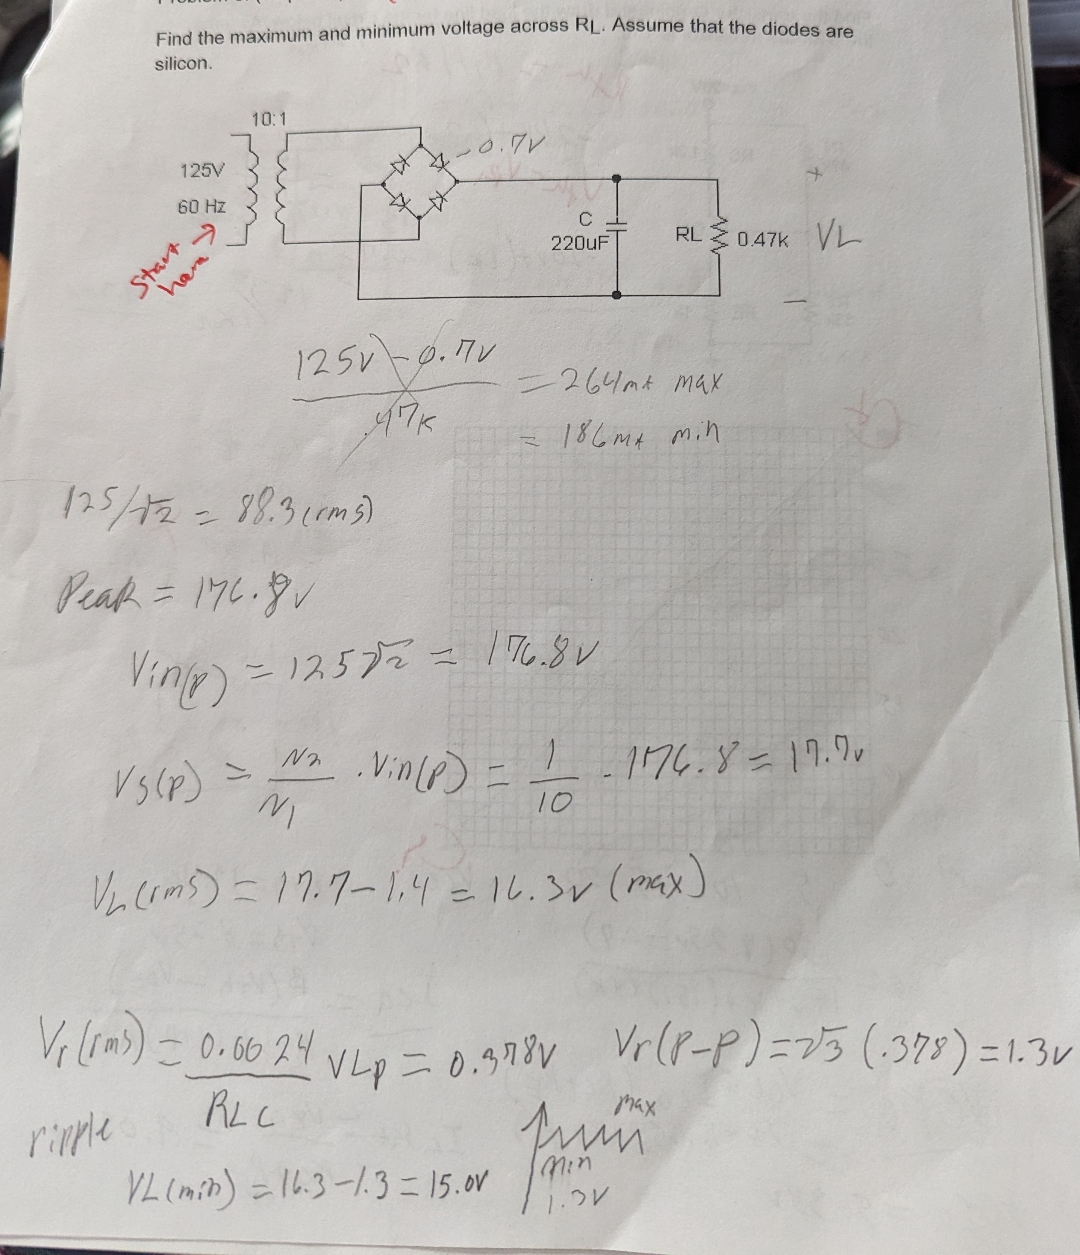 Find the maximum and minimum voltage across RL. Assume that the diodes are
silicon.
10:1
125V
60 Hz
-0.7V
C
220uF
RL
0.47k
+
VL
-
Start
here
125V - 0.7V
.47K
= 264mA max
= 186mA min
125/√2 = 88.3 (rms)
Peak = 176.8v
Vin(p) = 125√2 = 176.8V
Vs(p) = N2/N1 . Vin(p) = 1/10 . 176.8 = 17.7v
VL(rms) = 17.7-1.4 = 16.3v (max)
Vr(rms) = 0.0024/RLC VLp = 0.378V
Vr(p-p) = 2√3 (.378) = 1.3v
ripple
max
min
1.3V
VL(min) = 16.3-1.3 = 15.0V